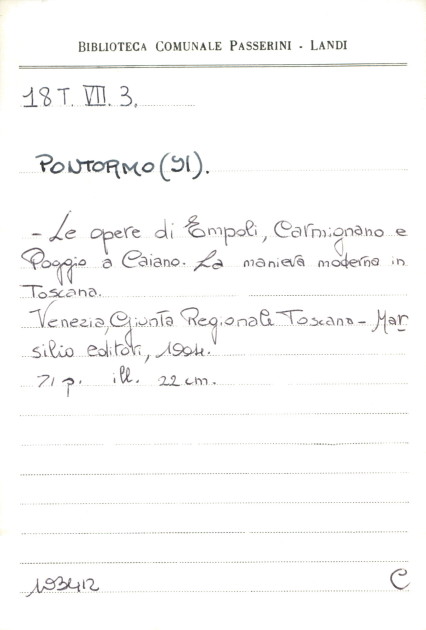 BIBLIOTECA COMUNALE PASSERINI - LANDI
18 T. VII. 3.
PONTORMO (Il).
- Le opere di Empoli, Carmignano e
Poggio a Caiano. La maniera moderna in
Toscana.
Venezia, Giunta Regionale Toscana - Mar
silio editori, 1994.
71 p. ill. 22 cm.
193412 C